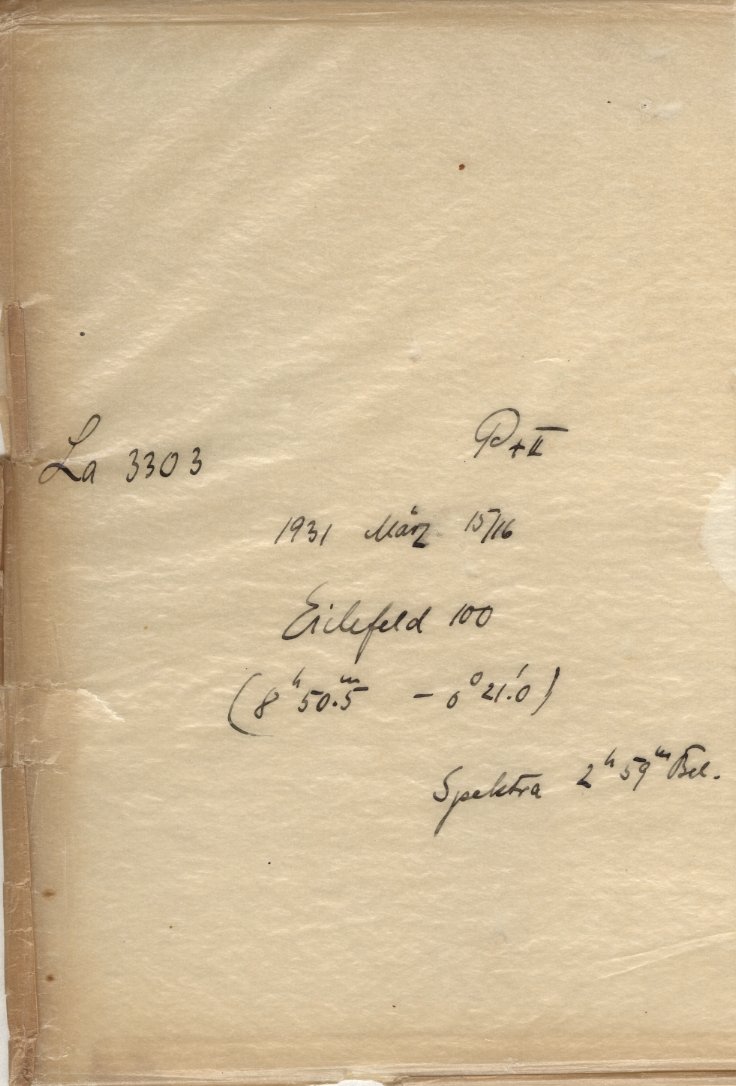 La 3303 P+II
1931 März 15/16
Eichfeld 100
(8ʰ50.ᵐ5 – 0°21.′0)
Spektra 2ʰ59ᵐ Bel.